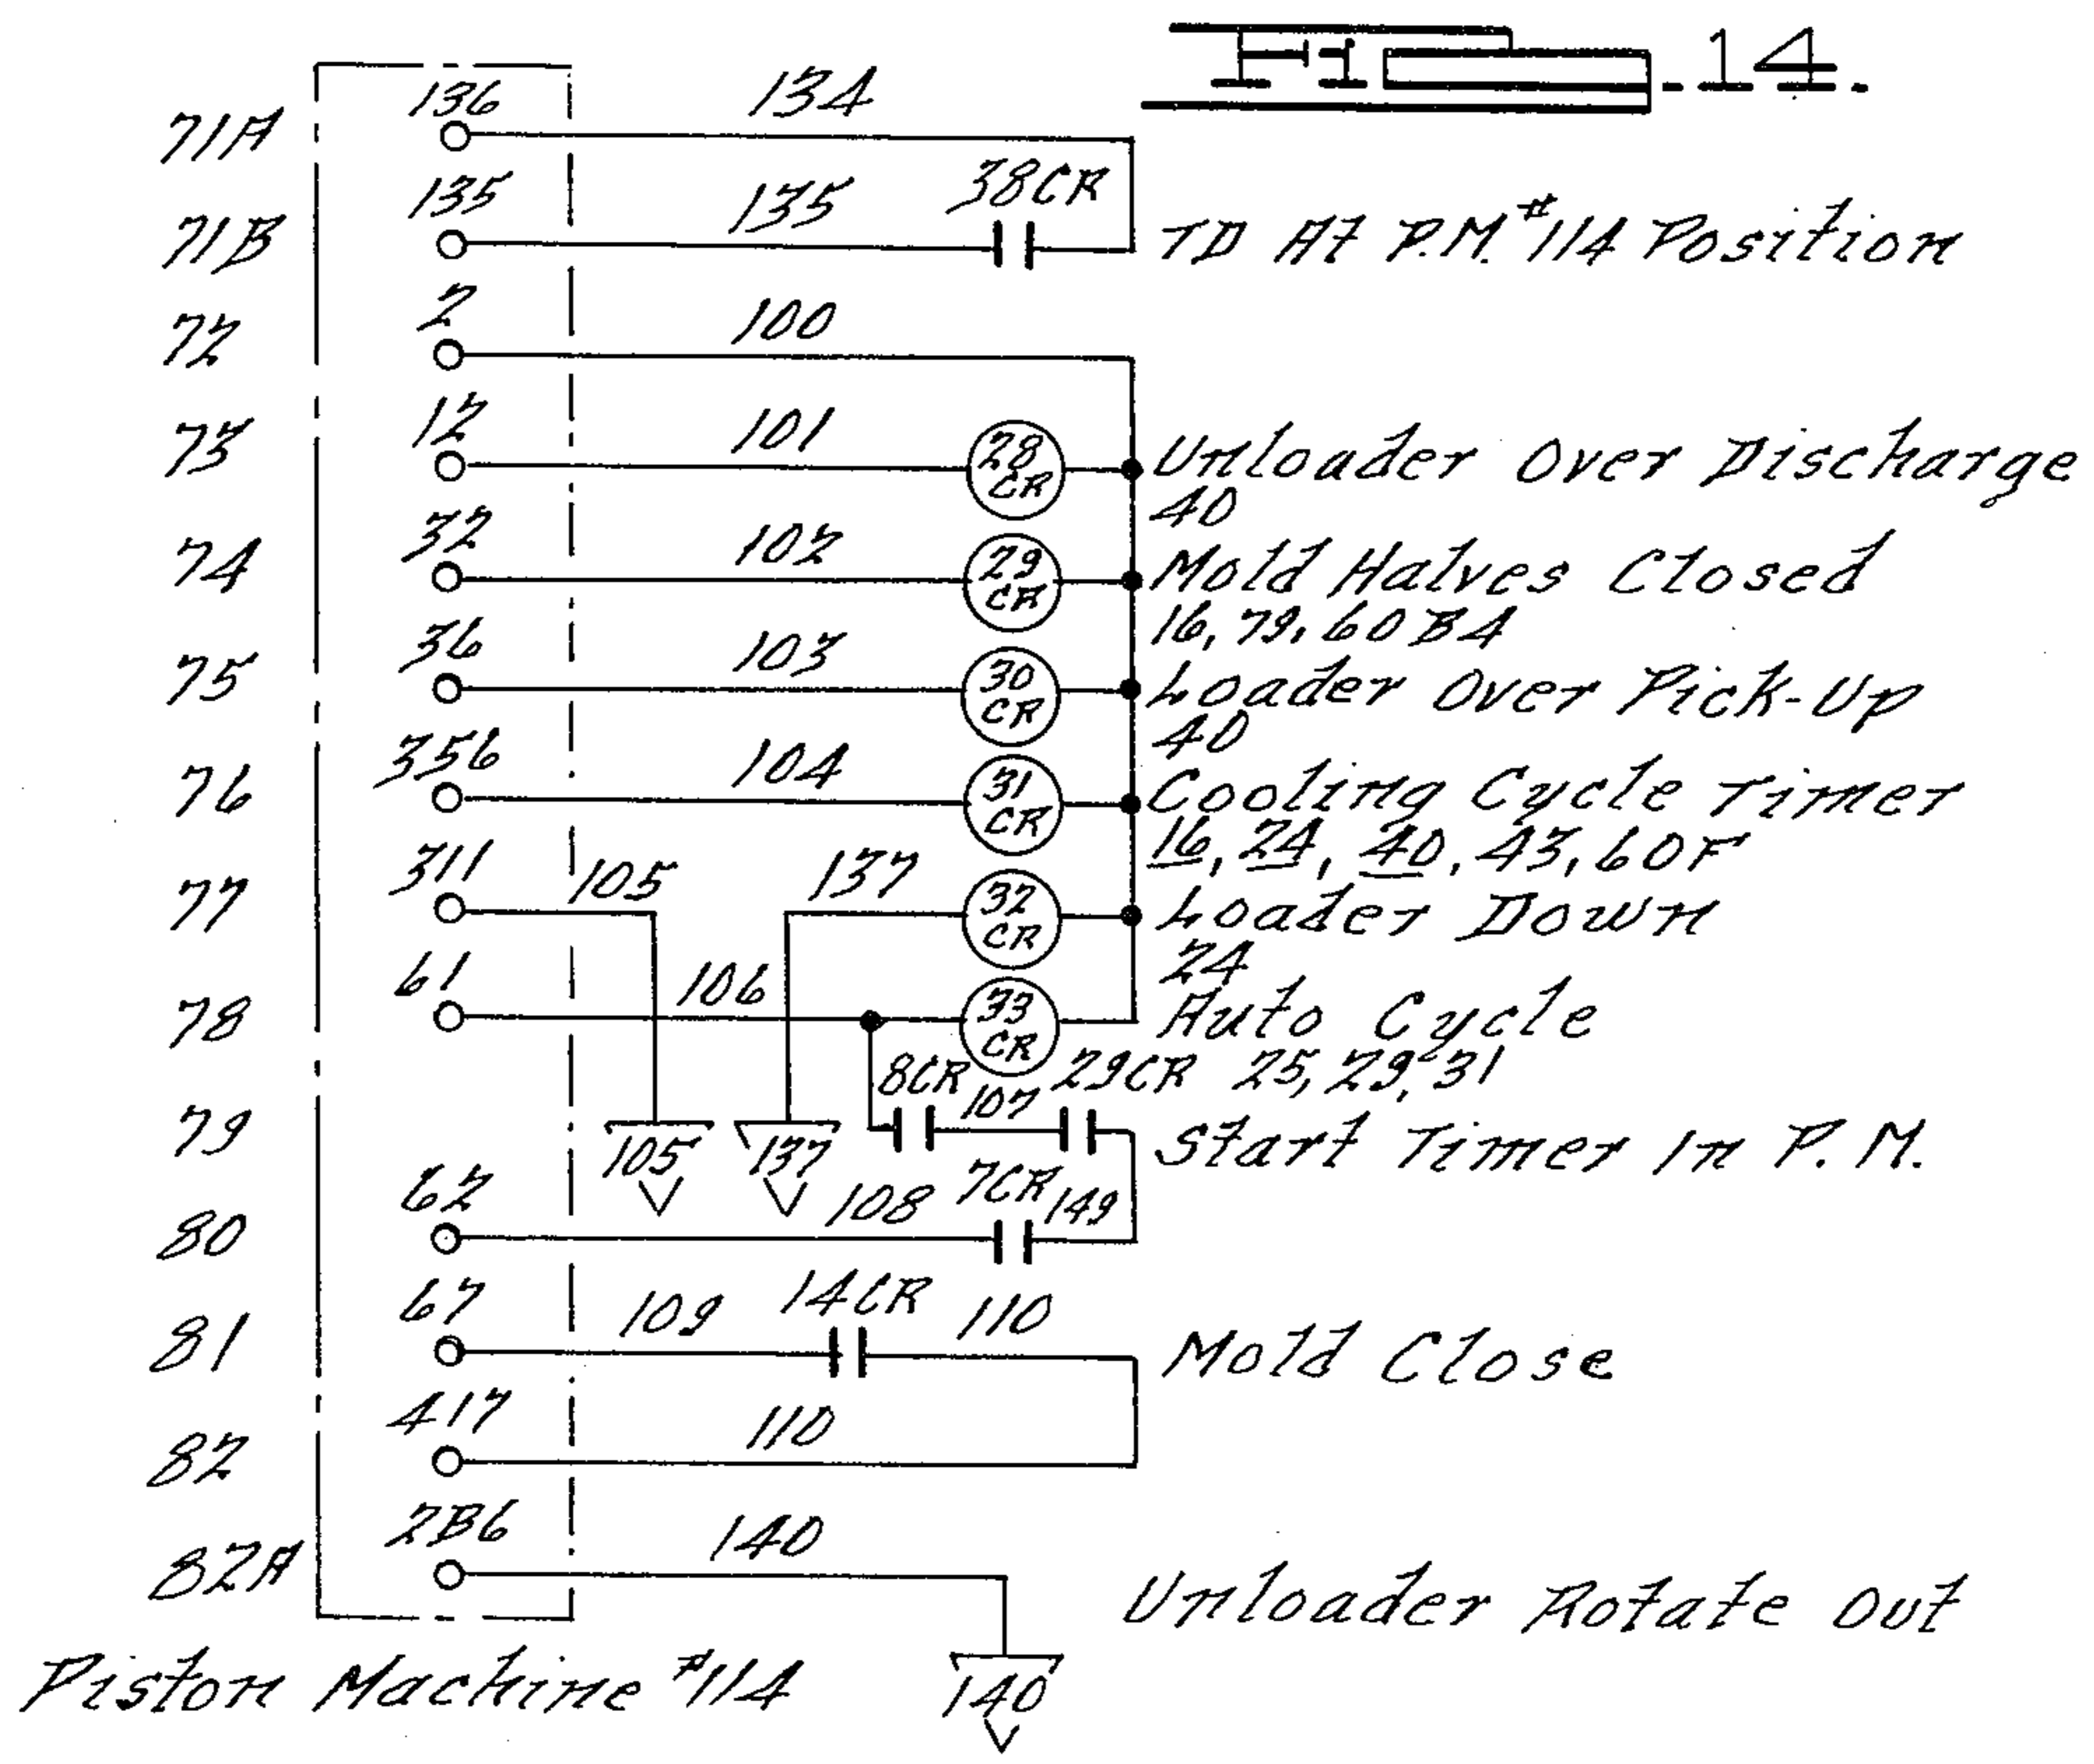 Fig. 14.
71A 136 134
38CR
71B 135 135 TD At P.M. #114 Position
72 2 100
73 12 101 28 CR Unloader Over Discharge
40
74 32 102 29 CR Mold Halves Closed
16, 79, 60B4
75 36 103 30 CR Loader Over Pick-Up
40
76 356 104 31 CR Cooling Cycle Timer
16, 24, 40, 43, 60F
77 311 105 137 32 CR Loader Down
24
78 61 106 33 CR Auto Cycle
8CR 107 29CR 25, 29, 31
79 105 137 Start Timer In P. M.
80 62 108 7CR 149
81 67 109 14CR 110 Mold Close
82 417 110
82A 2B6 140 Unloader Rotate Out
Piston Machine #114 140